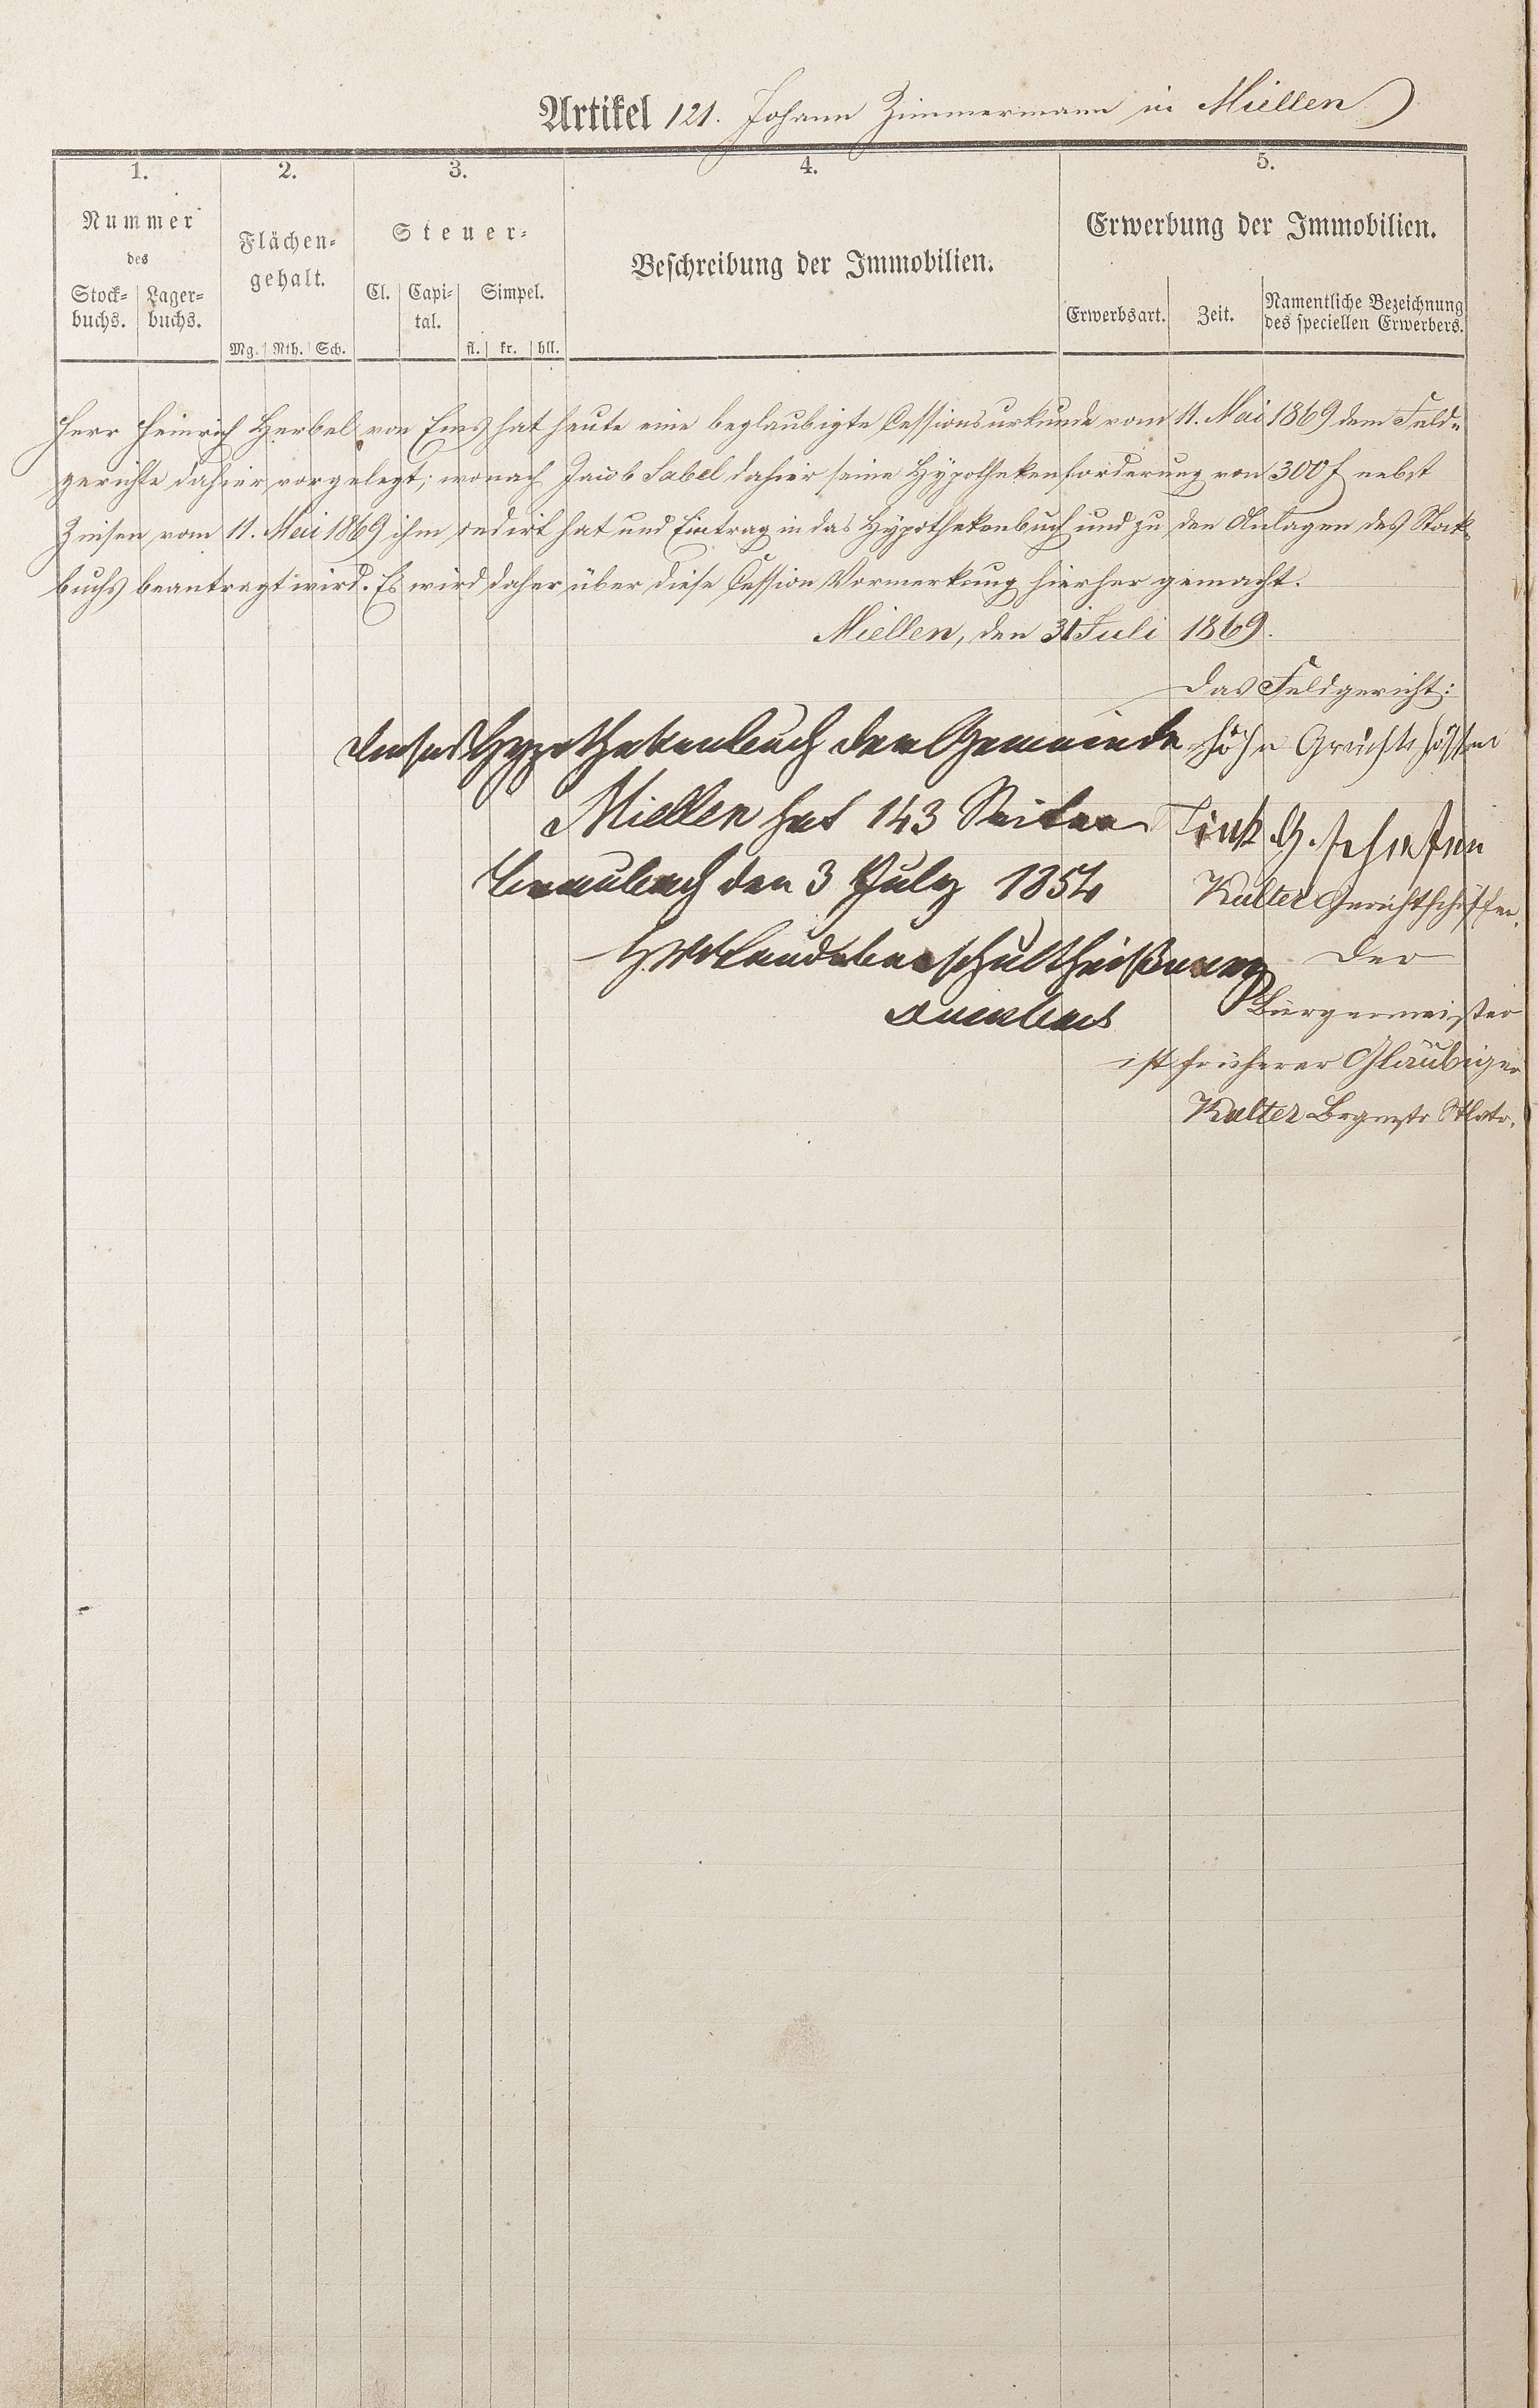 Artikel 121. Johann Zimmermann in Miellen
1. 2. 3. 4. 5.
Nummer des
Stock=buchs. Lager=buchs.
Flächen=gehalt.
Mg. Rth. Sch.
Steuer=
Cl. Capi=tal. Simpel.
fl. kr. hll.
Beschreibung der Immobilien.
Erwerbung der Immobilien.
Erwerbsart. Zeit. Namentliche Bezeichnung des speciellen Erwerbers.
Herr Heinrich Herbel von Ems hat heute eine beglaubigte Cessionsurkunde vom 11. Mai 1869 dem Feld=
gerichte dahier vorgelegt; wonach Jacob Sabel dahier seine Hypothekenforderung von 300 f nebst
Zinsen vom 11. Mai 1869 ihm cedirt hat und Eintrag in das Hypothekenbuch und zu den Anlagen des Stock=
buchs beantragt wird. Es wird daher über diese Cession Vormerkung hierher gemacht.
Miellen, den 31 Juli 1869.
Das Feldgericht:
Dieses Hypothekenbuch der Gemeinde
Miellen hat 143 Seiten
Braubach den 3 July 1854
Landoberschultheißerey
Höhn Gerichtsschöffen
Link G. Schöffen
Kalter Gerichtsschöffen.
Der
Bürgermeister
ist früherer Gläubiger
Kalter Brgmstr Stlvtr.